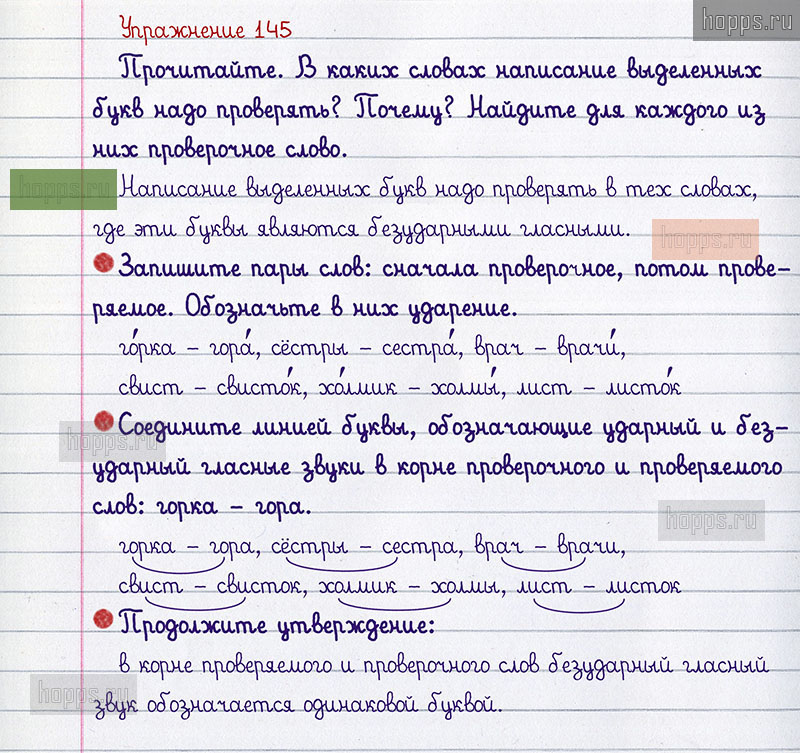 hopps.ru
Упражнение 145
Прочитайте. В каких словах написание выделенных
букв надо проверять? Почему? Найдите для каждого из
них проверочное слово.
hopps.ru
Написание выделенных букв надо проверять в тех словах,
где эти буквы являются безударными гласными.
hopps.ru
Запишите пары слов: сначала проверочное, потом прове-
ряемое. Обозначьте в них ударение.
го́рка – гора́, сёстры – сестра́, врач – врачи́,
свист – свисто́к, хо́лмик – холмы́, лист – листо́к
Соедините линией буквы, обозначающие ударный и без-
hopps.ru
ударный гласные звуки в корне проверочного и проверяемого
слов: горка – гора.
hopps.ru
горка – гора, сёстры – сестра, врач – врачи,
свист – свисток, холмик – холмы, лист – листок
Продолжите утверждение:
в корне проверяемого и проверочного слов безударный гласный
hopps.ru
звук обозначается одинаковой буквой.